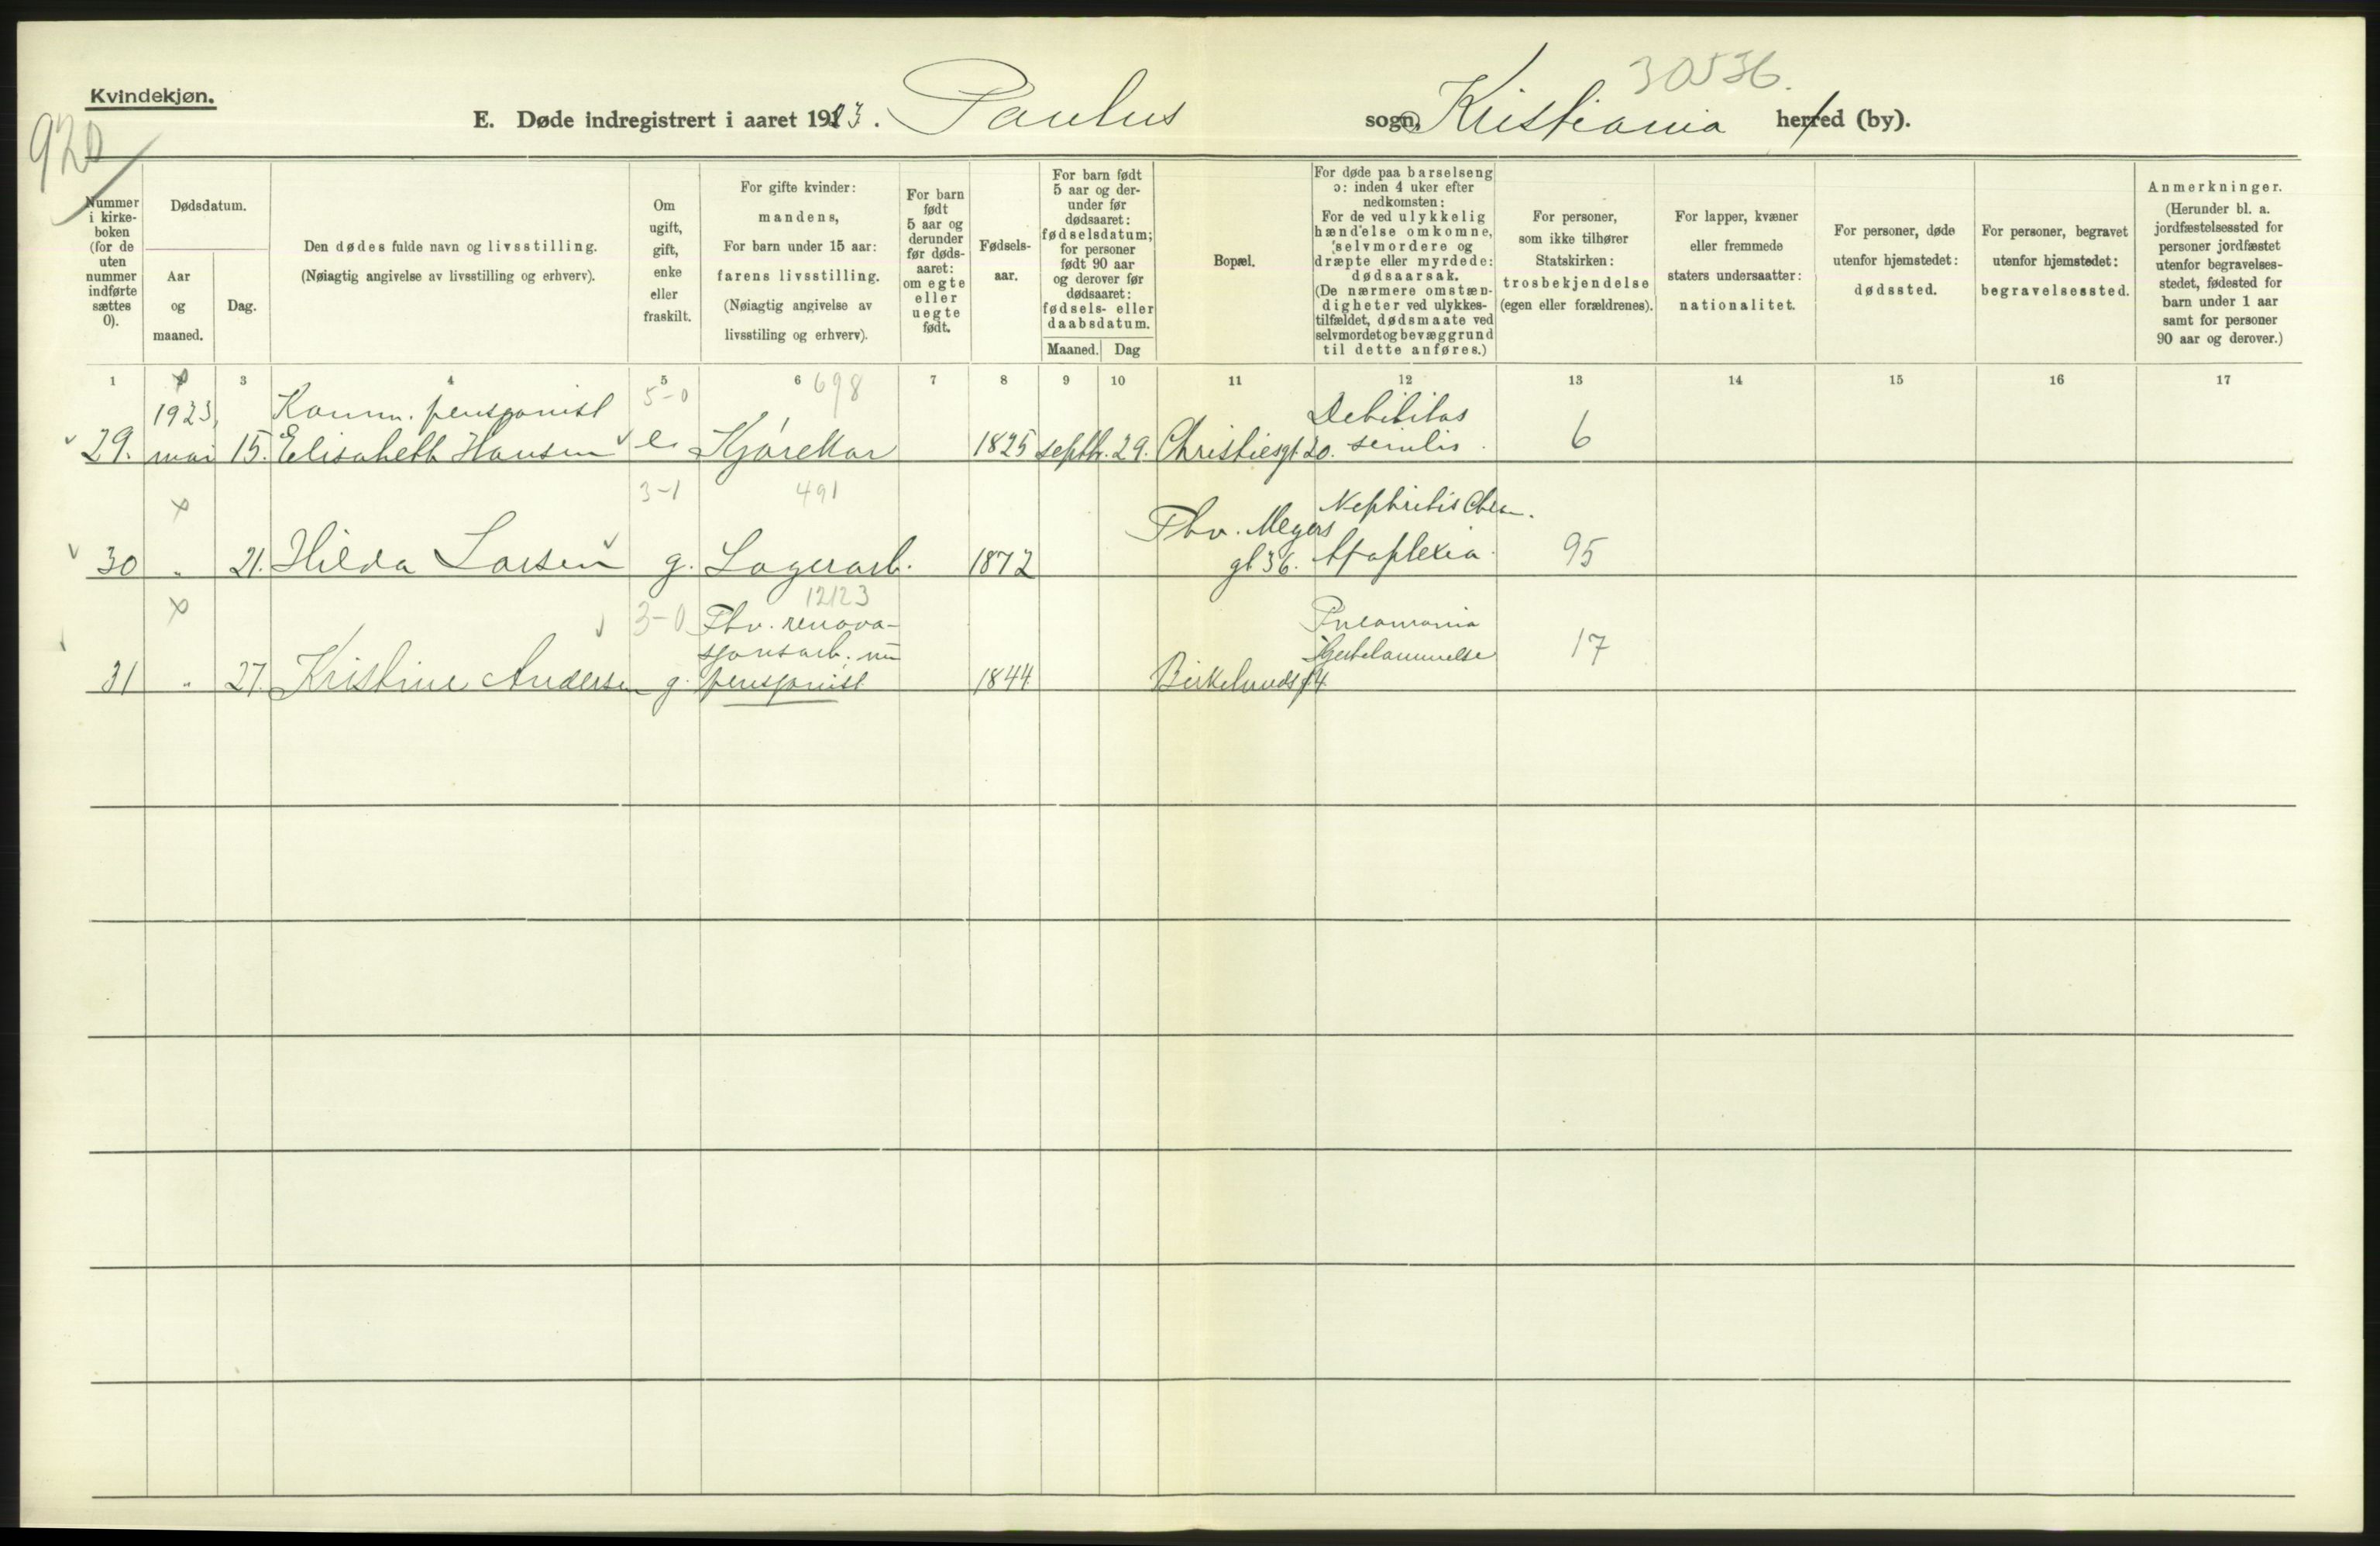 Kvindekjøn.
920
30536.
E. Døde indregistrert i aaret 1923. Paulus sogn, Kristiania herred (by).
Nummer i kirke-boken (for de uten nummer indførte sættes 0).
Dødsdatum.
Aar og maaned.
Dag.
Den dødes fulde navn og livsstilling.
(Nøiagtig angivelse av livsstilling og erhverv).
Om ugift, gift, enke eller fraskilt.
For gifte kvinder: mandens,
For barn under 15 aar: farens livsstilling.
(Nøiagtig angivelse av livsstiling og erhverv).
For barn født 5 aar og derunder før døds-aaret: om egte eller uegte født.
Fødsels-aar.
For barn født 5 aar og der-under før dødsaaret: fødselsdatum; for personer født 90 aar og derover før dødsaaret: fødsels- eller daabsdatum.
Maaned. Dag
Bopæl.
For døde paa barselseng ɔ: inden 4 uker efter nedkomsten:
For de ved ulykkelig hændelse omkomne, selvmordere og dræpte eller myrdede: dødsaarsak.
(De nærmere omstæn-digheter ved ulykkes-tilfældet, dødsmaate ved selvmordet og bevæggrund til dette anføres.)
For personer, som ikke tilhører Statskirken: trosbekjendelse (egen eller forældrenes).
For lapper, kvæner eller fremmede staters undersaatter: nationalitet.
For personer, døde utenfor hjemstedet: dødssted.
For personer, begravet utenfor hjemstedet: begravelsessted.
Anmerkninger.
(Herunder bl. a. jordfæstelsessted for personer jordfæstet utenfor begravelses-stedet, fødested for barn under 1 aar samt for personer 90 aar og derover.)
1 3 4 5 6 7 8 9 10 11 12 13 14 15 16 17
5-0 698
1923, Komm. pensjonist Debilitas
29. mai 15. Elisabeth Hansen e. Kjørekar 1825 septbr. 29. Christiesgt. 20. senilis. 6
3-1 491
Thv. Meyers Nephritis Chron.
30 " 21. Hilda Larsen g. Lagerarb. 1872 gt 36. Apoplexia. 95
12123
3-0 Fhv. renova- Pneumonia
sjonsarb. nu Hjertelammelse 17
31 " 27. Kristine Andersen g. pensjonist 1844 Birkelunds gt. 4.